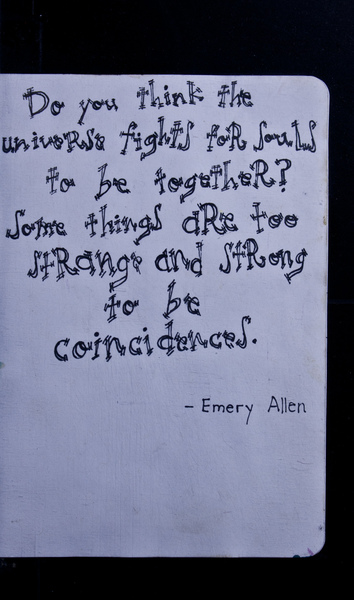 Do you think the
universe fights foR souls
to be togetheR?
Some things aRe too
stRange and stRong
to be
coincidences.
- Emery Allen